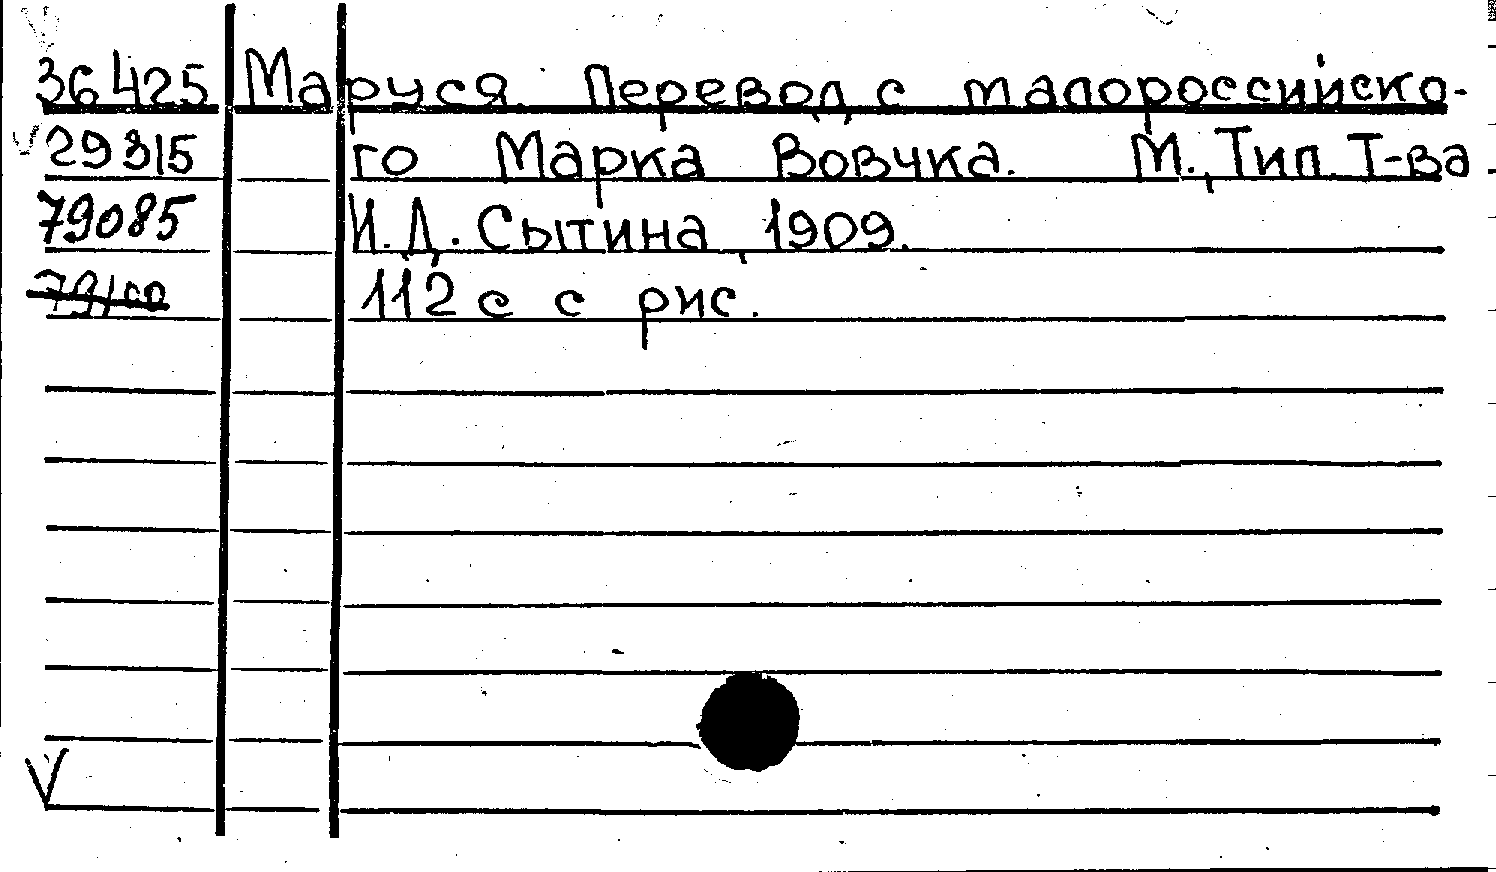 36425 Маруся. Перевод с малороссийско-
29315 го Марка Вовчка. М., Тип. Т-ва
79085 И.Д. Сытина, 1909.
112 с с рис.